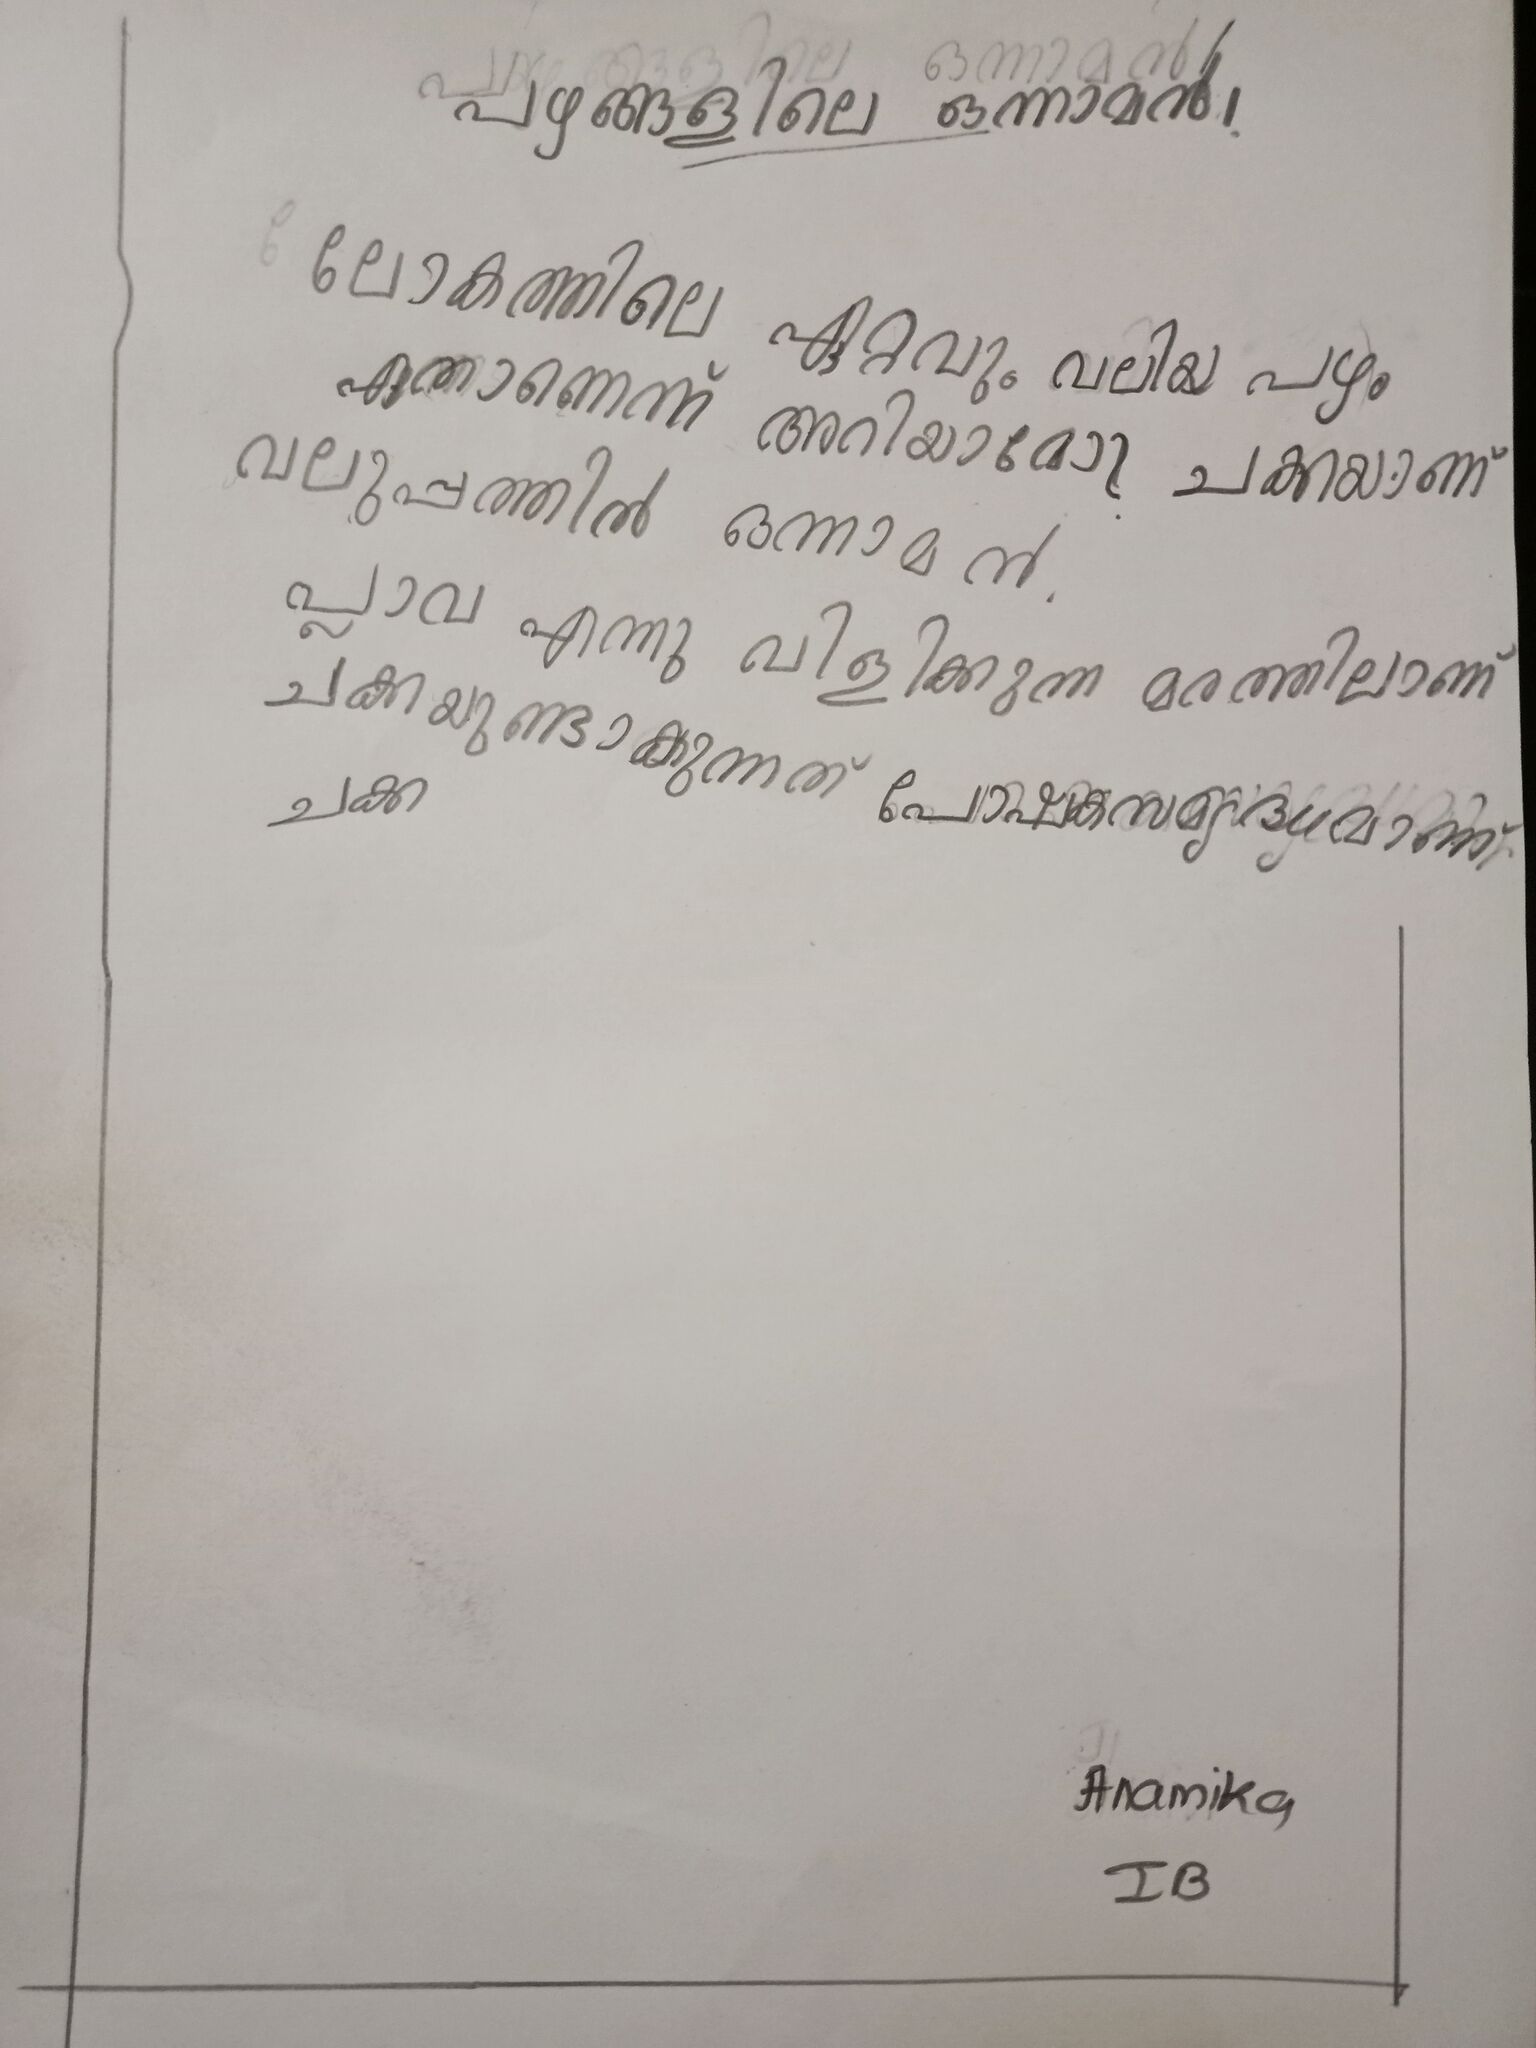 പഴങ്ങളിലെ ഒന്നാമൻ!
ലോകത്തിലെ ഏറ്റവും വലിയ പഴം
ഏതാണെന്ന് അറിയാമോ? ചക്കയാണ്
വലുപ്പത്തിൽ ഒന്നാമൻ.
പ്ലാവ എന്നു വിളിക്കുന്ന മരത്തിലാണ്
ചക്കയുണ്ടാകുന്നത് പോഷകസമൃദ്ധമാണ്
ചക്ക
Anamika
IB